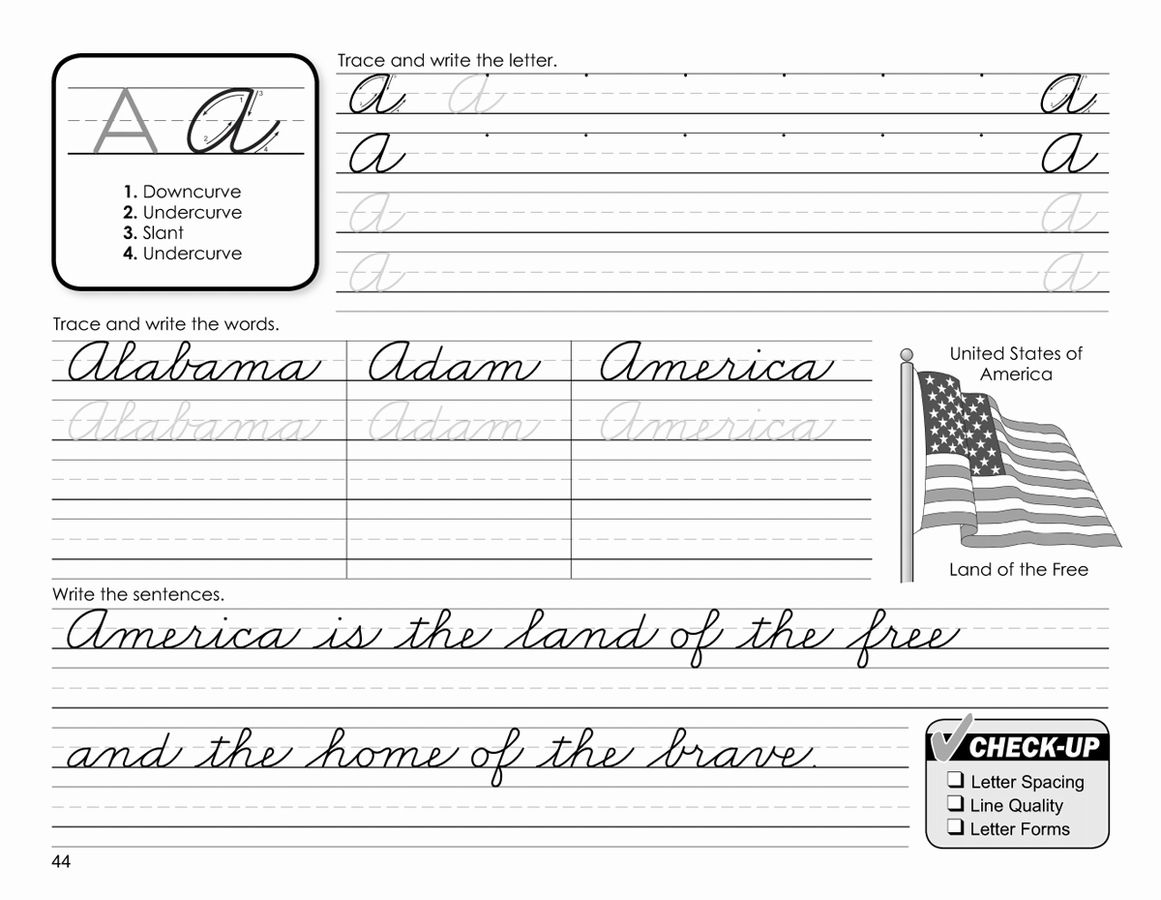 A a
1
2
3
4
1. Downcurve
2. Undercurve
3. Slant
4. Undercurve
Trace and write the letter.
a a a
a a
a a
a a
Trace and write the words.
Alabama Adam America
Alabama Adam America
United States of
America
Land of the Free
Write the sentences.
America is the land of the free
and the home of the brave.
CHECK-UP
Letter Spacing
Line Quality
Letter Forms
44